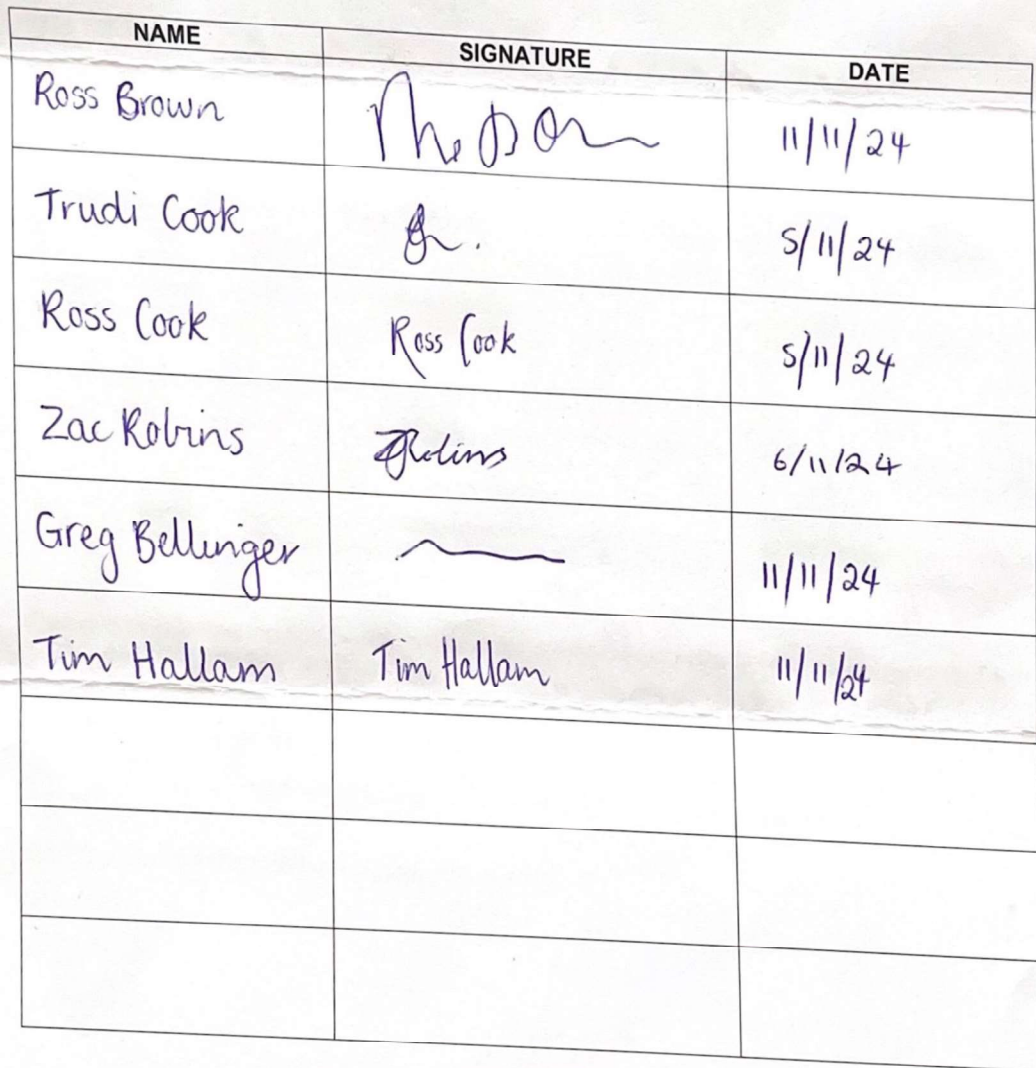 NAME SIGNATURE DATE
Ross Brown 11/11/24
Trudi Cook 5/11/24
Ross Cook Ross Cook 5/11/24
Zac Robins ZRobins 6/11/24
Greg Bellinger 11/11/24
Tim Hallam Tim Hallam 11/11/24